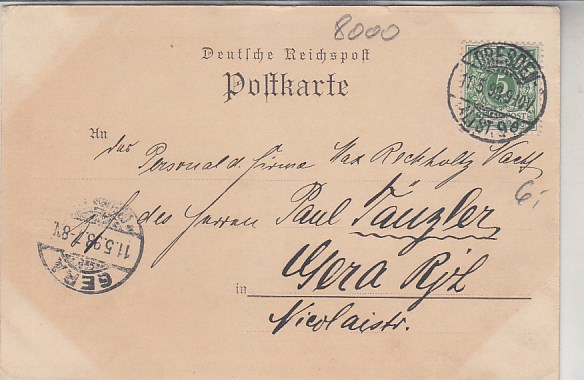 8000
Deutsche Reichspost
Postkarte
DRESDEN
11.5.98.
ALTST.
5
An
das Personal d. Firma Max Rechholtz Nachf
6,-
des Herren Paul Tänzler
GERA
11.5.98.7-8½N.
Gera Rjl
in
Nicolaistr.